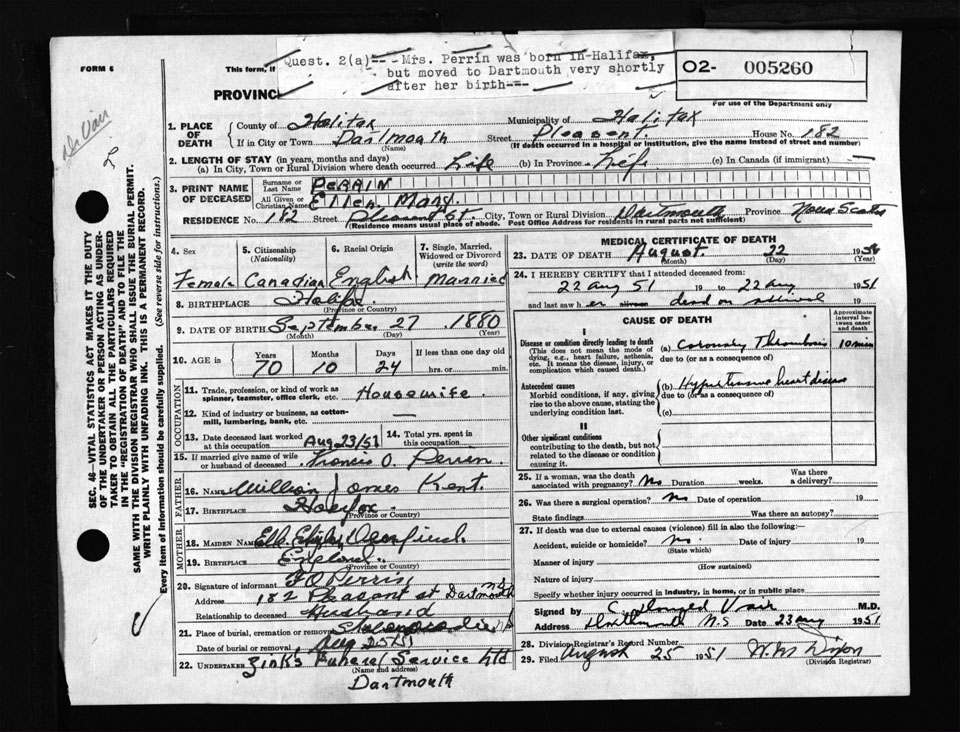 FORM 6
This form, if
Quest. 2(a)--- Mrs. Perrin was born in Halifax,
but moved to Dartmouth very shortly
after her birth---
PROVINC
O2- 005260
For use of the Department only
1. PLACE OF DEATH
County of Halifax Municipality of Halifax
If in City or Town Dartmouth Street Pleasent. House No. 182
(Name) (If death occurred in a hospital or institution, give the name instead of street and number)
2. LENGTH OF STAY (in years, months and days)
(a) In City, Town or Rural Division where death occurred Life (b) In Province Life (c) In Canada (if immigrant) —
3. PRINT NAME OF DECEASED
Surname or Last Name PERRIN
All Given or Christian Names Ellen Mary.
RESIDENCE No. 182 Street Pleasant St. City, Town or Rural Division Dartmouth Province Nova Scotia
(Residence means usual place of abode. Post Office Address for residents in rural parts not sufficient)
4. Sex
Female
5. Citizenship (Nationality)
Canadian
6. Racial Origin
English
7. Single, Married, Widowed or Divorced (write the word)
Married
8. BIRTHPLACE Halifax
(Province or Country)
9. DATE OF BIRTH September 27 1880
(Month) (Day) (Year)
10. AGE in Years Months Days If less than one day old
70 10 24 hrs. or min.
OCCUPATION
11. Trade, profession, or kind of work as spinner, teamster, office clerk, etc. Housewife.
12. Kind of industry or business, as cotton-mill, lumbering, bank, etc. —
13. Date deceased last worked at this occupation Aug 23/51
14. Total yrs. spent in this occupation
15. If married give name of wife or husband of deceased Francis O. Perrin
FATHER
16. NAME William James Kent.
17. BIRTHPLACE Halifax
(Province or Country)
MOTHER
18. MAIDEN NAME
19. BIRTHPLACE England
(Province or Country)
20. Signature of informant F O Perrin
Address 182 Pleasant st Dartmouth
Relationship to deceased Husband
21. Place of burial, cremation or removal Shubenacadie NS
Date of burial or removal Aug 25/51
22. UNDERTAKER Zink's Funeral Service Ltd
(Name and address)
Dartmouth
MEDICAL CERTIFICATE OF DEATH
23. DATE OF DEATH August. 22 19
(Month) (Day) (Year)
24. I HEREBY CERTIFY that I attended deceased from:
22 Aug 51 19 to 22 Aug 1951
and last saw h er alive on dead on arrival 19
CAUSE OF DEATH
Approximate interval between onset and death
I
Disease or condition directly leading to death
(This does not mean the mode of dying, e.g., heart failure, asthenia, etc. It means the disease, injury, or complication which caused death.)
(a) Coronary Thrombosis 10 min
due to (or as a consequence of)
Antecedent causes
Morbid conditions, if any, giving rise to the above cause, stating the underlying condition last.
(b) Hypertensive heart disease
due to (or as a consequence of)
(c)
II
Other significant conditions
contributing to the death, but not related to the disease or condition causing it.
25. If a woman, was the death associated with pregnancy? No Duration weeks. Was there a delivery?
26. Was there a surgical operation? No Date of operation 19
State findings Was there an autopsy?
27. If death was due to external causes (violence) fill in also the following:—
Accident, suicide or homicide? No. Date of injury 19
(State which)
Manner of injury
(How sustained)
Nature of injury
Specify whether injury occurred in industry, in home, or in public place
Signed by M.D.
Address Dartmouth N.S Date 23 Aug 1951
28. Division Registrar's Record Number
29. Filed August 25 1951 Dixon
(Division Registrar)
SEC. 46—VITAL STATISTICS ACT MAKES IT THE DUTY
OF THE UNDERTAKER OR PERSON ACTING AS UNDER-
TAKER TO OBTAIN ALL THE PARTICULARS REQUIRED
IN THE "REGISTRATION OF DEATH" AND TO FILE THE
SAME WITH THE DIVISION REGISTRAR WHO SHALL ISSUE THE BURIAL PERMIT.
WRITE PLAINLY WITH UNFADING INK. THIS IS A PERMANENT RECORD.
Every item of information should be carefully supplied. (See reverse side for instructions.)